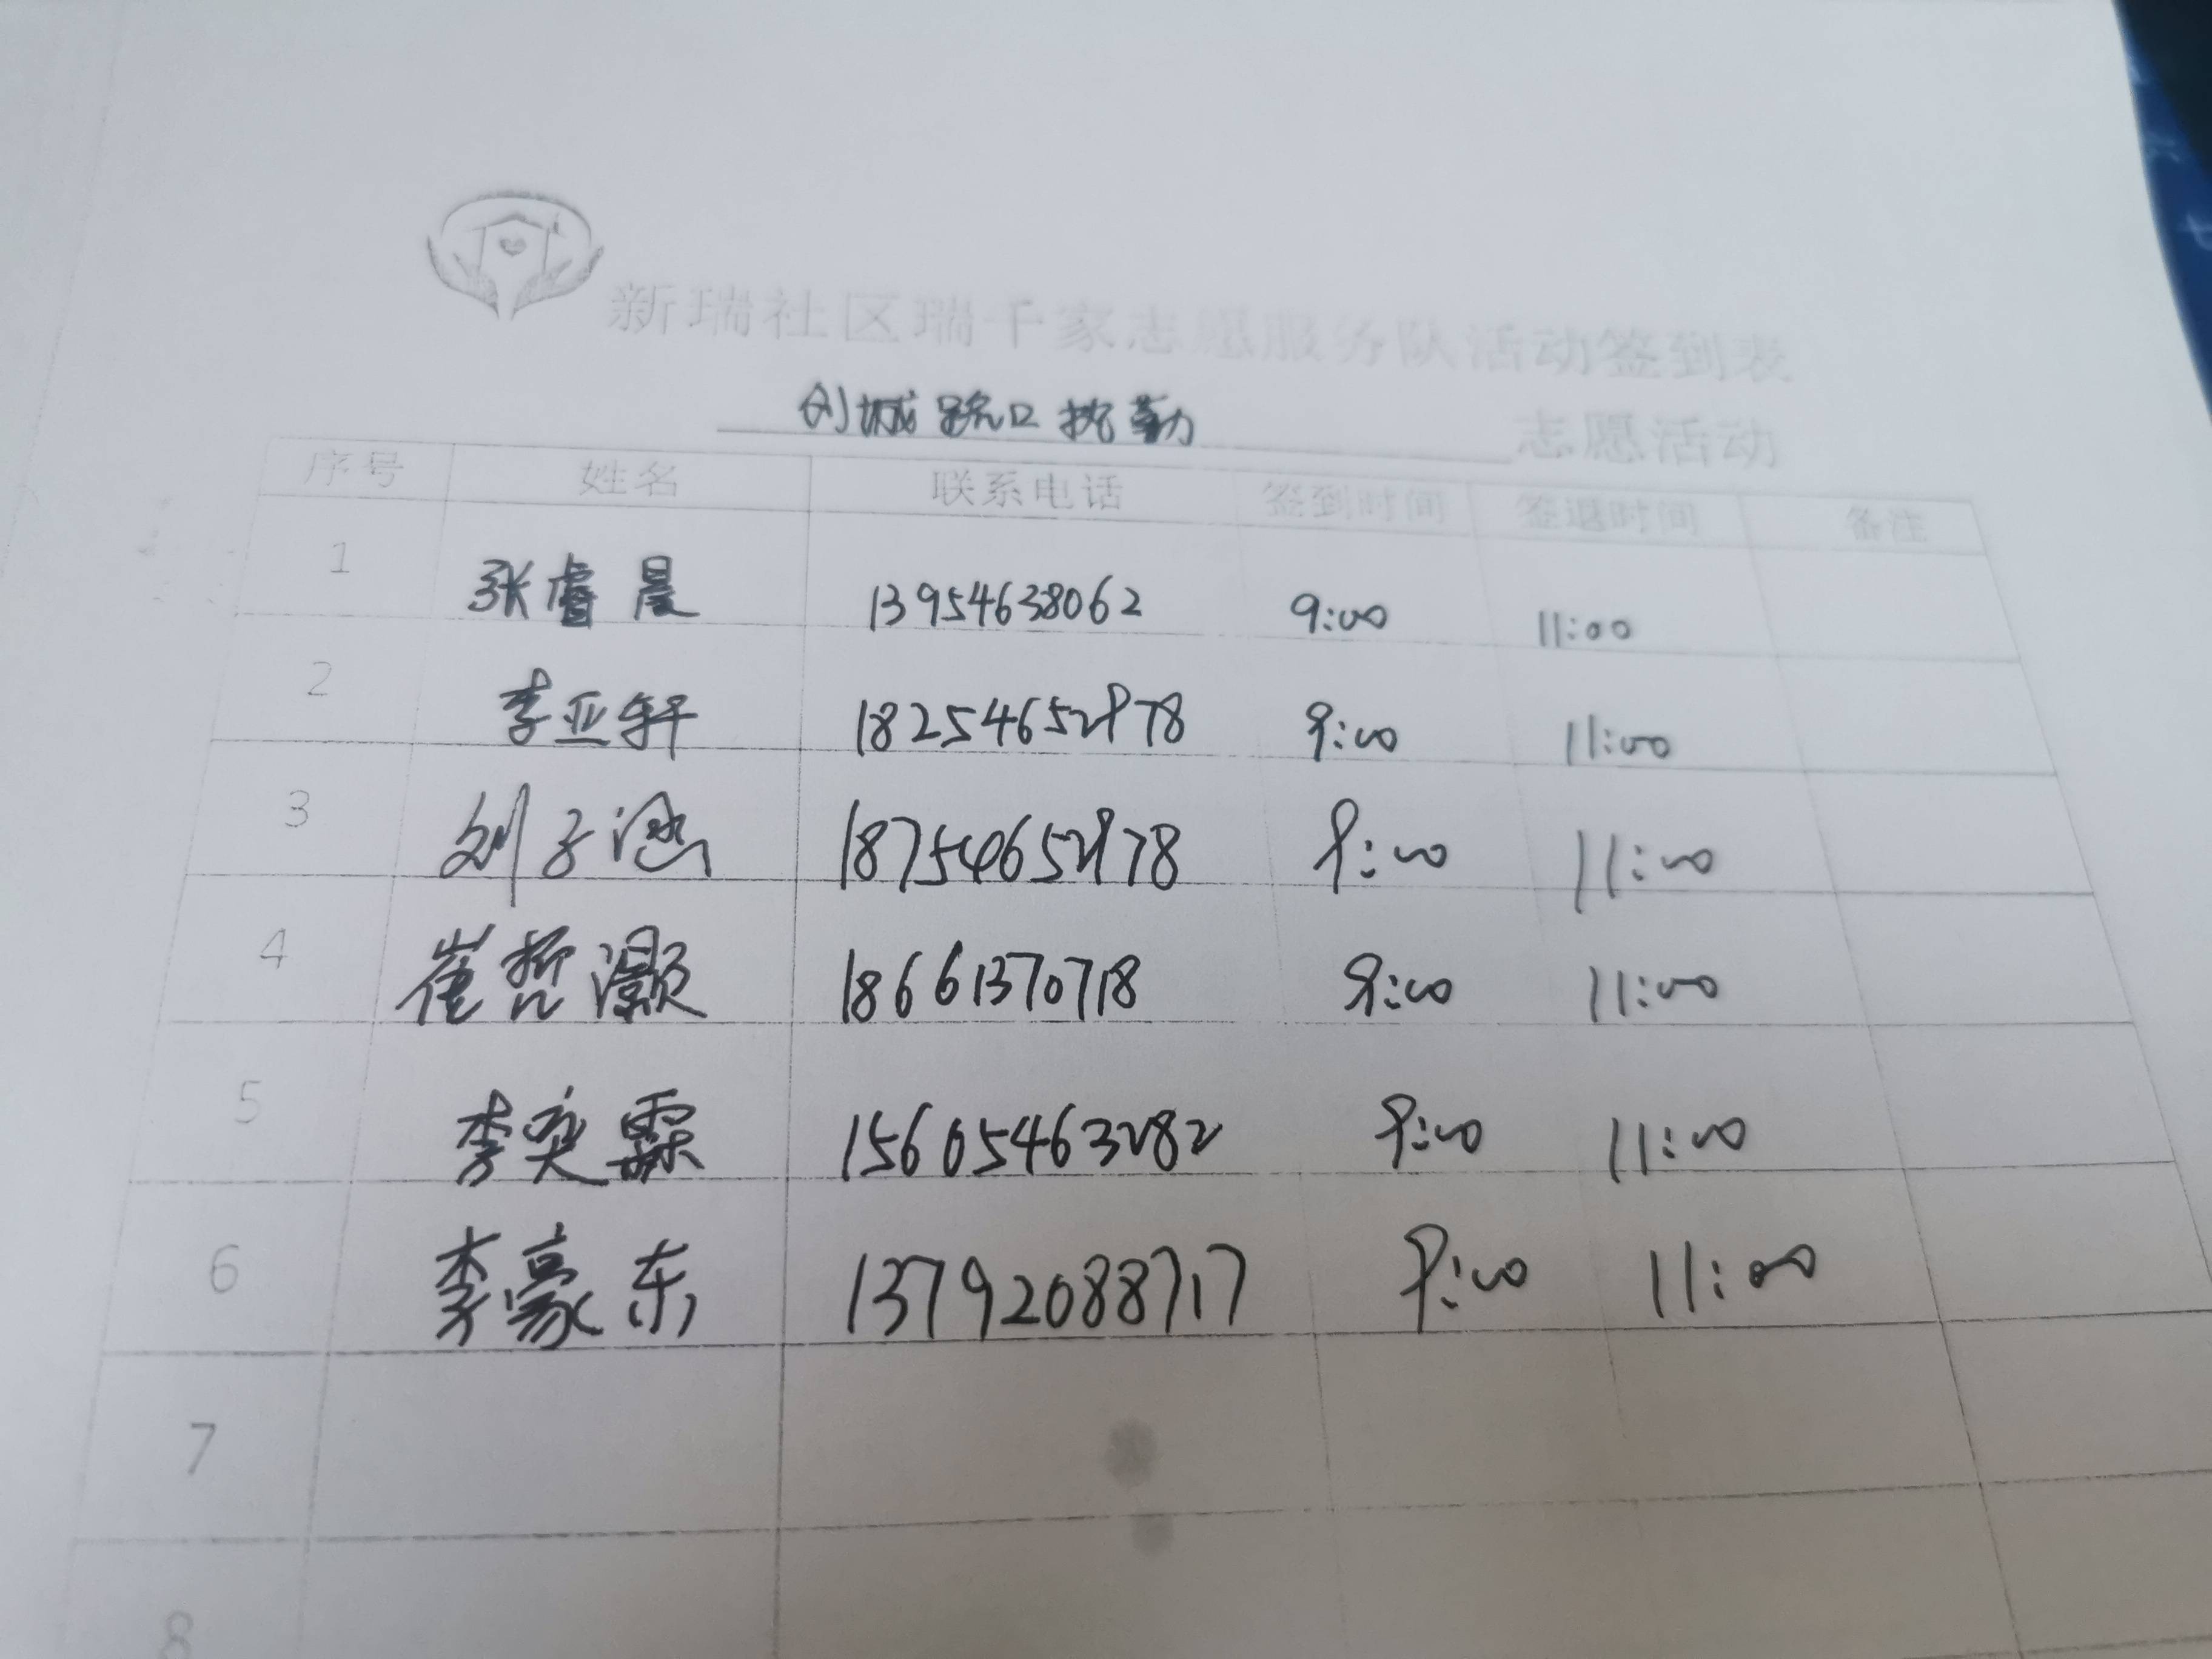 新瑞社区瑞千家志愿服务队活动签到表
创城路口执勤 志愿活动
序号 姓名 联系电话 签到时间 签退时间 备注
1 张睿晨 13954638062 9:00 11:00
2 李亚轩 18254652978 9:00 11:00
3 刘子涵 18754652978 9:00 11:00
4 崔哲灏 18661370718 9:00 11:00
5 李奕霖 15605463282 9:00 11:00
6 李豪东 13792088717 9:00 11:00
7
8